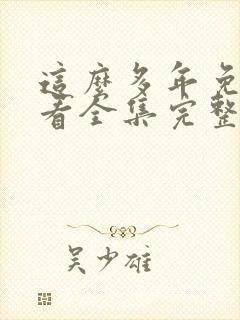 這麼多年免
看全集完整
吴少雄